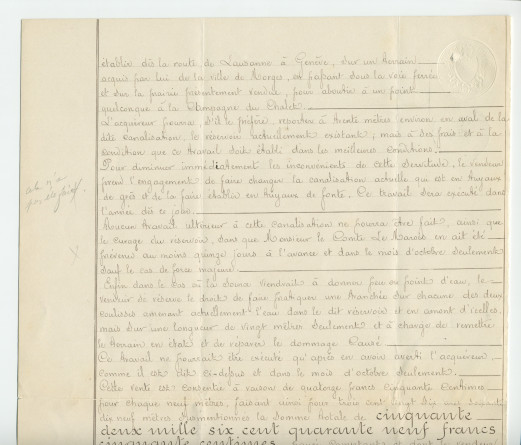 établie dès la route de Lausanne à Genève, sur un terrain
acquis par lui de la ville de Morges, en passant sous la voie ferrée
et sur la prairie présentement vendue, pour aboutir à un point
quelconque à la Campagne du Chalet.
L'acquéreur pourra s'il le préfère reporter à trente mètres environ en aval de la
dite canalisation, le réservoir actuellement existant; mais à ses frais et à la
condition que ce travail soit établi dans les meilleures conditions.
Pour diminuer immédiatement les inconvénients de cette servitude, le vendeur
prend l'engagement de faire changer la canalisation actuelle qui est en tuyaux
de grès et de la faire établir en tuyaux de fonte. Ce travail sera exécuté dans
l'année dès ce jour.
Aucun travail ultérieur à cette canalisation ne pourra être fait, ainsi que
le curage du réservoir, sans que Monsieur le Comte Le Marois en ait été
prévenu au moins quinze jours à l'avance et dans le mois d'octobre seulement
sauf le cas de force majeure
Enfin dans le cas où la source viendrait à donner peu ou point d'eau, le
vendeur se réserve le droit de faire pratiquer une tranchée sur chacune des deux
coulisses amenant actuellement l'eau dans le dit réservoir et en amont d'icelles,
mais sur une longueur de vingt mètres seulement et à charge de remettre
le terrain en état et de réparer le dommage causé
Ce travail ne pourrait être exécuté qu'après en avoir averti l'acquéreur
comme il est dit ci-dessus et dans le mois d'octobre seulement.
Cette vente est consentie à raison de quatorze francs cinquante centimes
pour chaque neuf mètres, faisant ainsi pour trois cent vingt six
dix neuf mètres susmentionnés la somme totale de cinquante
deux mille six cent quarante neuf francs
cinquante centimes